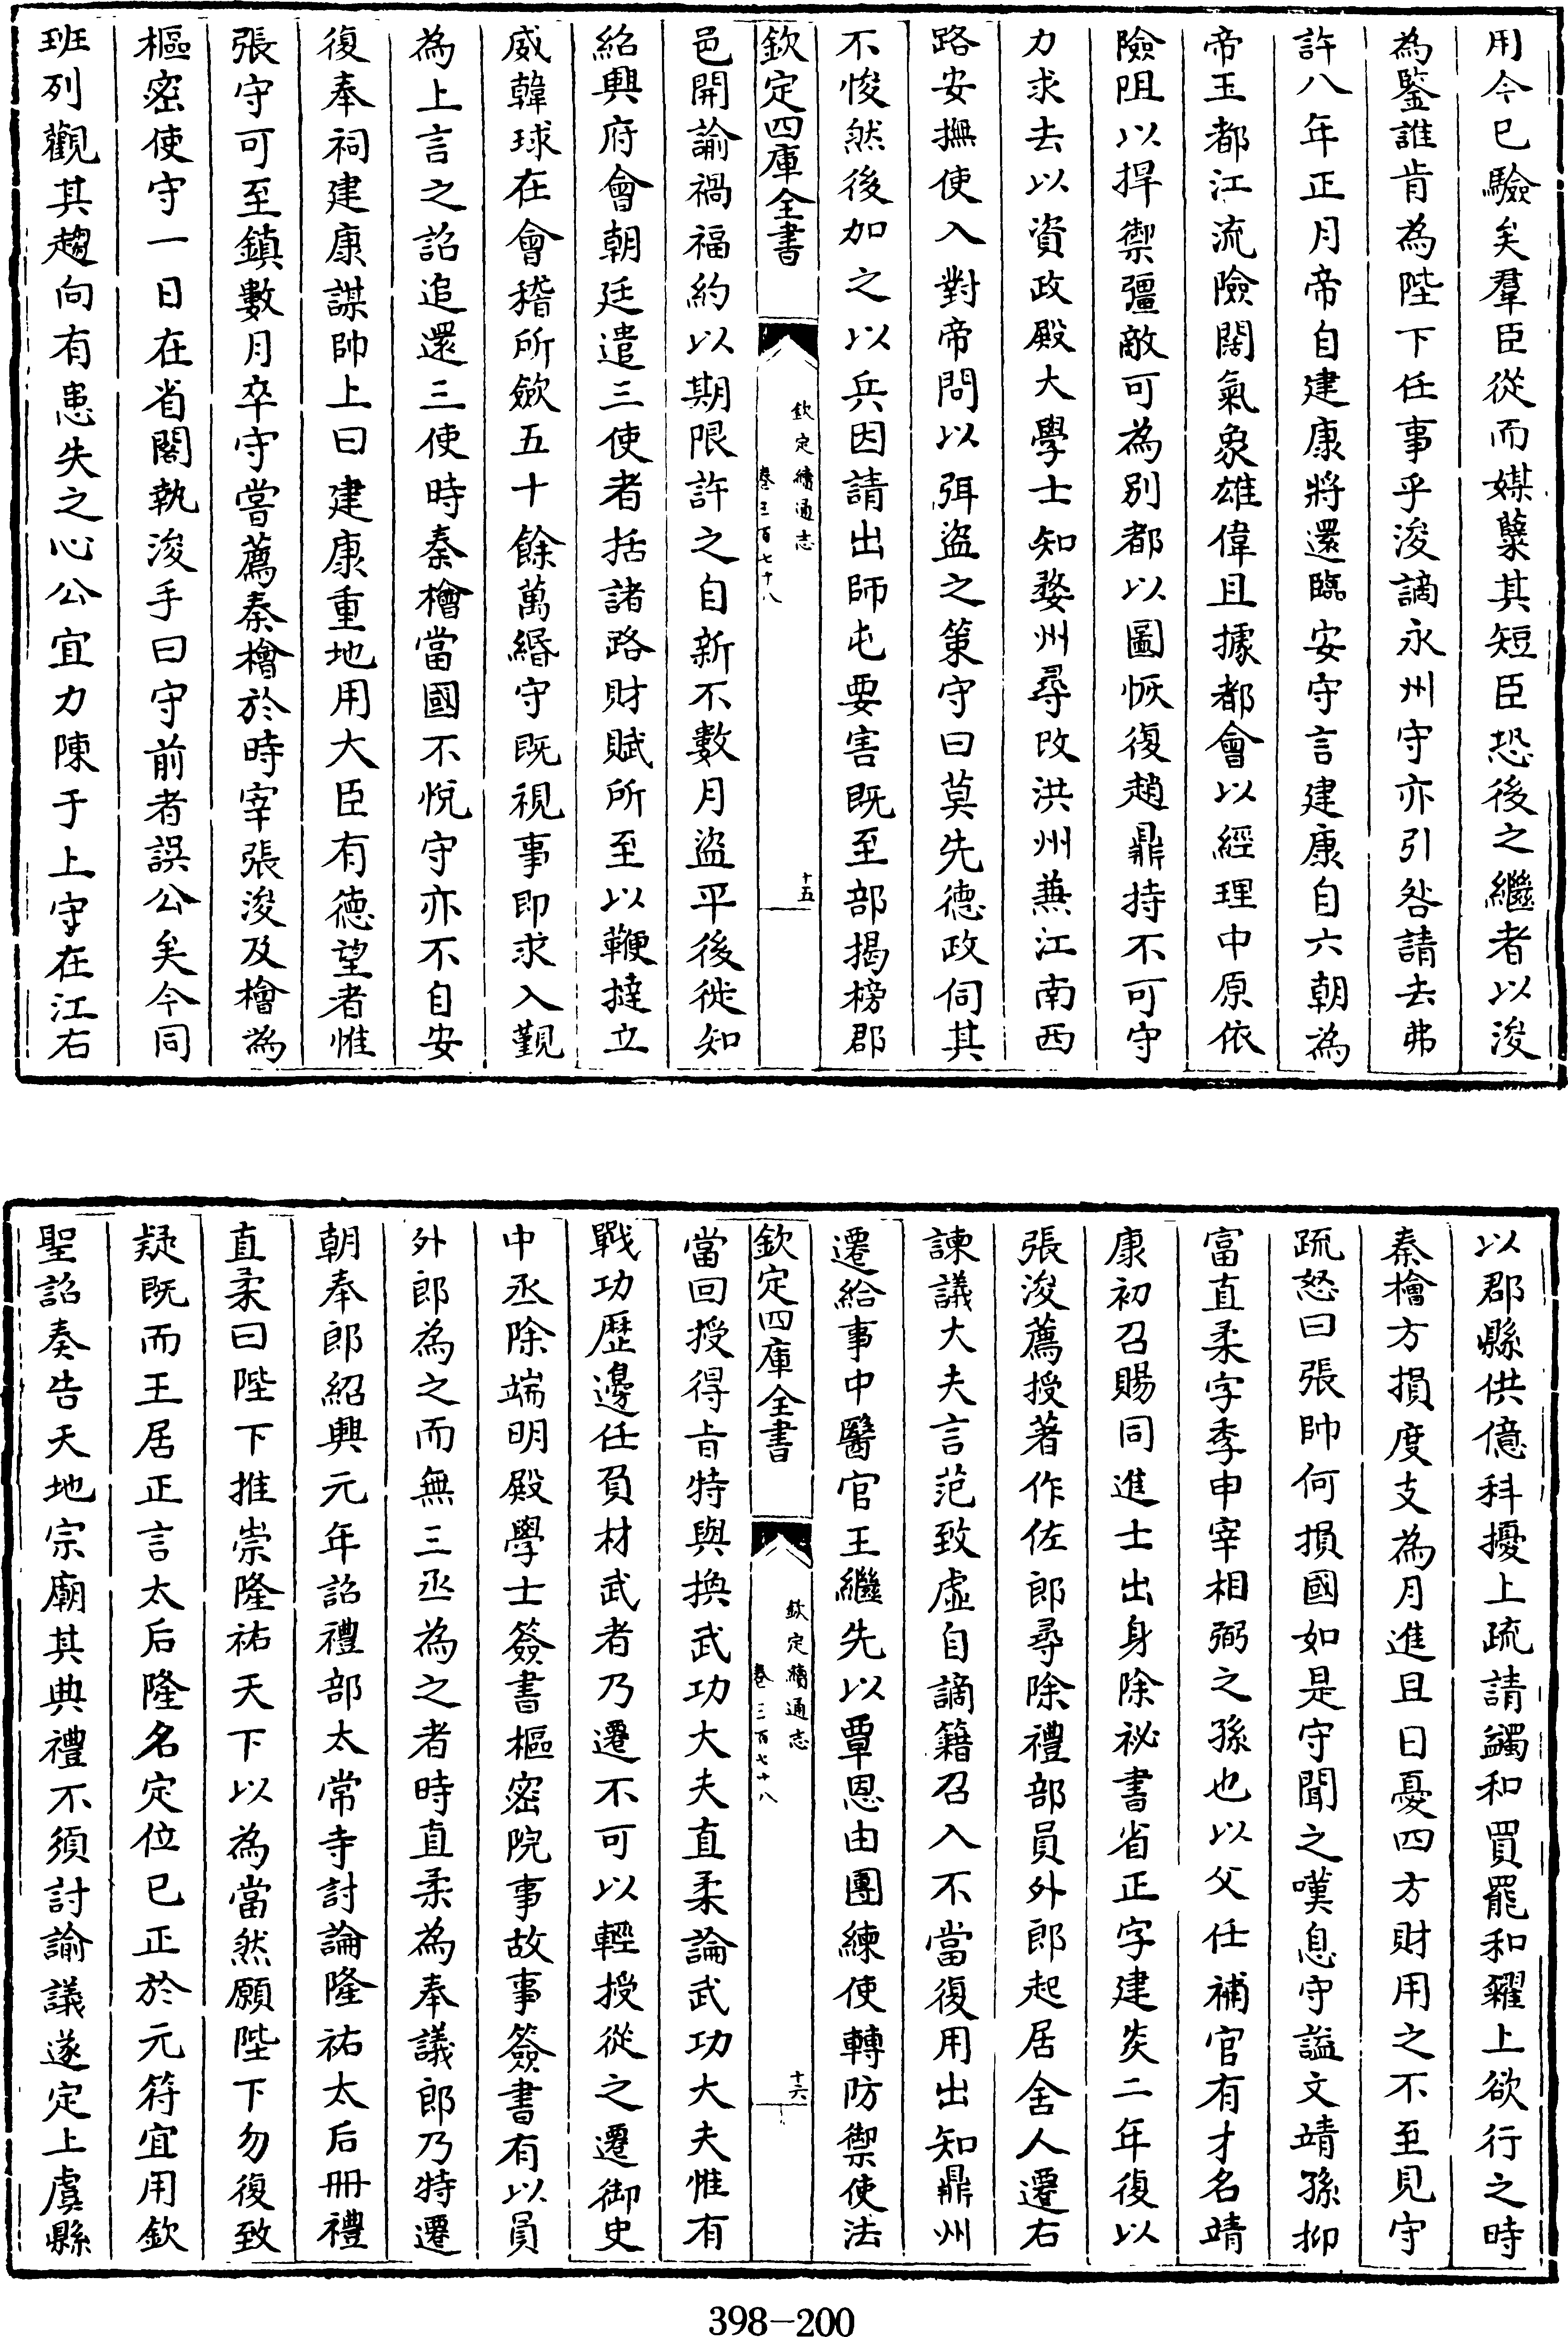 用今已驗矣羣臣從而媒糵其短臣恐後之繼者以浚
為鑒誰肯為陛下任事乎浚謫永州守亦引咎請去弗
許八年正月帝自建康將還臨安守言建康自六朝為
帝王都江流險闊氣象雄偉且據都會以經理中原依
險阻以捍禦彊敵可為別都以圖恢復趙鼎持不可守
力求去以資政殿大學士知婺州尋改洪州兼江南西
路安撫使入對帝問以弭盜之策守曰莫先德政伺其
不悛然後加之以兵因請出師屯要害既至部揭榜郡
欽定四庫全書
欽定續通志
卷三百七十八
十五
邑開諭禍福約以期限許之自新不數月盜平後徙知
紹興府會朝廷遣三使者括諸路財賦所至以鞭撻立
威韓球在會稽所斂五十餘萬緡守既視事即求入覲
為上言之詔追還三使時秦檜當國不悅守亦不自安
復奉祠建康謀帥上曰建康重地用大臣有德望者惟
張守可至鎮數月卒守嘗薦秦檜於時宰張浚及檜為
樞密使守一日在省閣執浚手曰守前者誤公矣今同
班列觀其趨向有患失之心公宜力陳于上守在江右
以郡縣供億科擾上疏請蠲和買罷和糴上欲行之時
秦檜方損度支為月進且日憂四方財用之不至見守
疏怒曰張帥何損國如是守聞之嘆息守謚文靖孫抑
富直柔字季申宰相弼之孫也以父任補官有才名靖
康初召賜同進士出身除祕書省正字建炎二年復以
張浚薦授著作佐郎尋除禮部員外郎起居舍人遷右
諫議大夫言范致虛自謫籍召入不當復用出知鼎州
遷給事中醫官王繼先以覃恩由團練使轉防禦使法
欽定四庫全書
欽定續通志
卷三百七十八
十六
當回授得旨特與換武功大夫直柔論武功大夫惟有
戰功歷邊任負材武者乃遷不可以輕授從之遷御史
中丞除端明殿學士簽書樞密院事故事簽書有以員
外郎為之而無三丞為之者時直柔為奉議郎乃特遷
朝奉郎紹興元年詔禮部太常寺討論隆祐太后冊禮
直柔曰陛下推崇隆祐天下以為當然願陛下勿復致
疑既而王居正言太后隆名定位已正於元符宜用欽
聖詔奏告天地宗廟其典禮不須討諭議遂定上虞縣
398-200